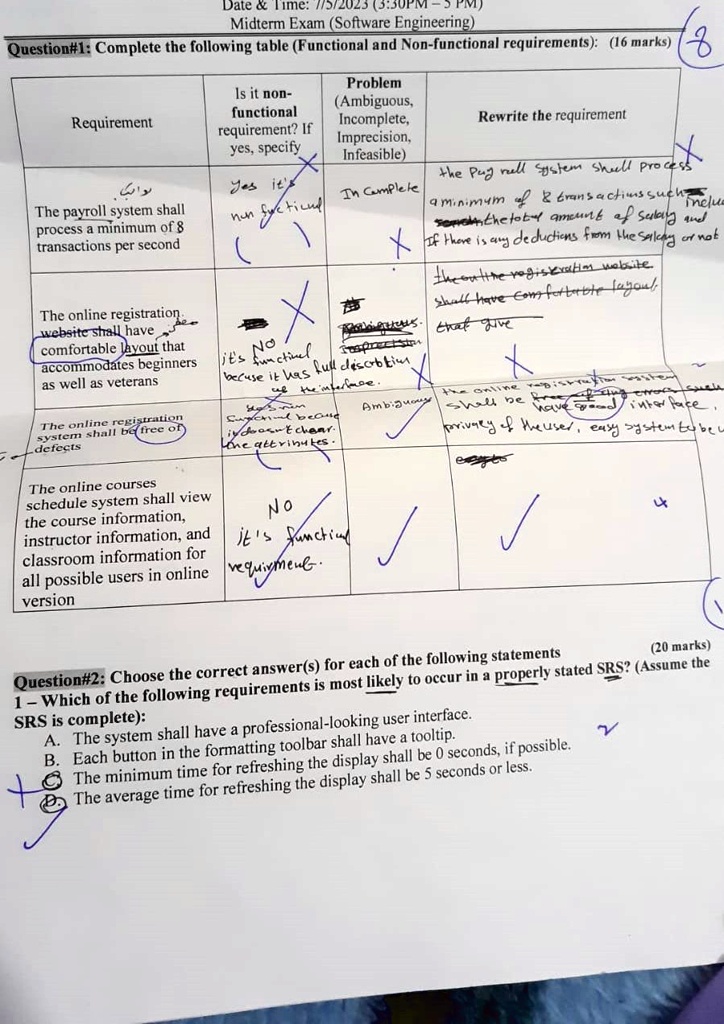 Date & Time: 7/5/2023 (3:30PM – 5 PM)
Midterm Exam (Software Engineering)
Question#1: Complete the following table (Functional and Non-functional requirements): (16 marks)
8
Requirement
Is it non-
functional
requirement? If
yes, specify
Problem
(Ambiguous,
Incomplete,
Imprecision,
Infeasible)
Rewrite the requirement
The payroll system shall
process a minimum of 8
transactions per second
Yes it's
nun functiunl
In Camplete
the Pay roll system shull process
a minimum of 8 transactiuns such
the total amount of Salary and
If there is any deductions from the Salary or not
The online registration
website shall have
comfortable layout that
accommodates beginners
as well as veterans
NO
it's functinul
becuse it has full discrbtiun
of the interface.
the online registration website
shall have comfortable layout
that give
The online registration
system shall be free of
defects
it doesn't chear
the attributes.
Ambiguous
the online registration system
shall be have good interface,
privacy of the user, easy system to be u
The online courses
schedule system shall view
the course information,
instructor information, and
classroom information for
all possible users in online
version
NO
it's functiunl
requirment.
4
Question#2: Choose the correct answer(s) for each of the following statements (20 marks)
1 – Which of the following requirements is most likely to occur in a properly stated SRS? (Assume the
SRS is complete):
A. The system shall have a professional-looking user interface.
B. Each button in the formatting toolbar shall have a tooltip.
C. The minimum time for refreshing the display shall be 0 seconds, if possible.
D. The average time for refreshing the display shall be 5 seconds or less.
2